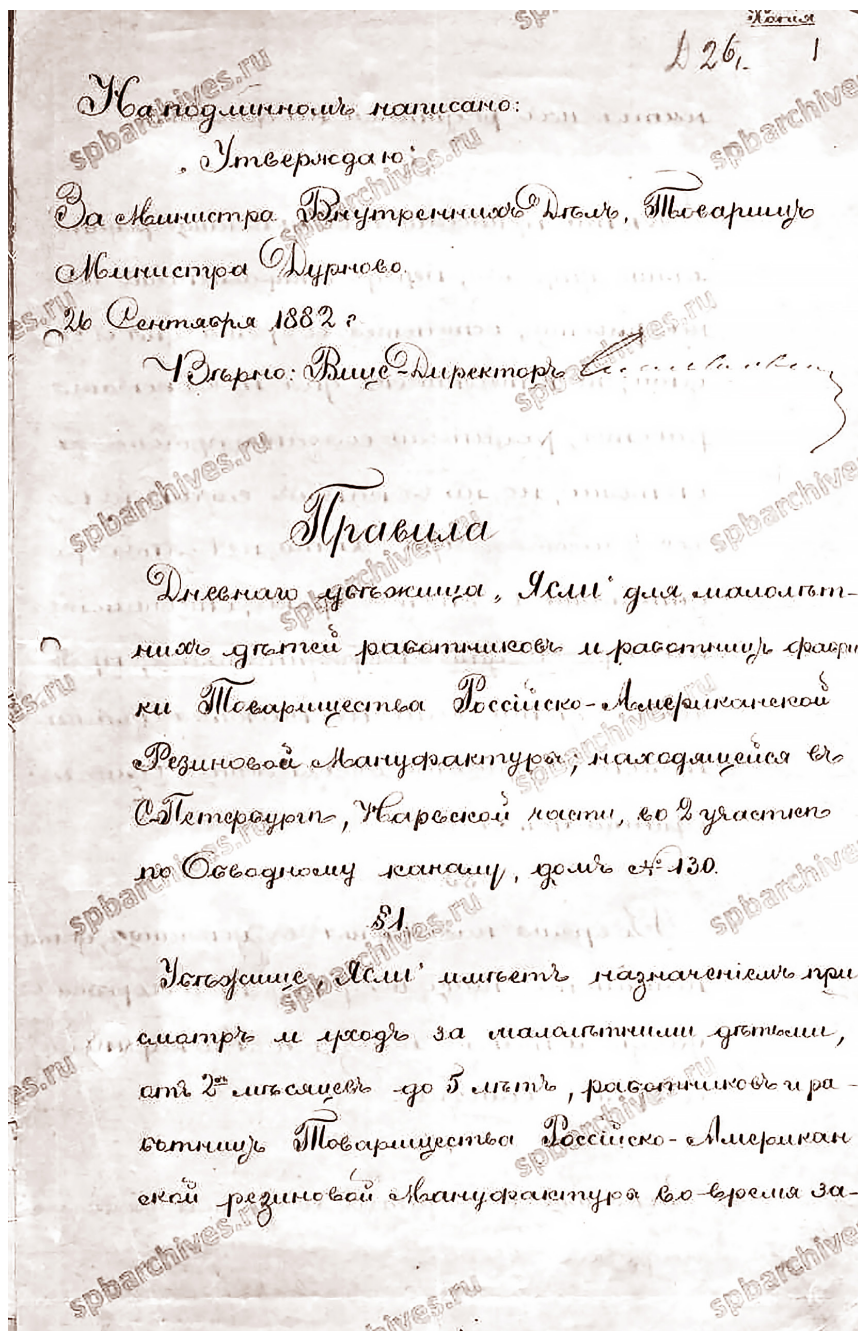 Копія
Д 26. 1
На подлинномъ написано:
„Утверждаю“
За Министра Внутреннихъ Дѣлъ, Товарищъ
Министра Дурново.
26 Сентября 1882 г.
Вѣрно: Вице-Директоръ
Правила
Дневнаго убѣжища „Ясли“ для малолѣт-
нихъ дѣтей работниковъ и работницъ фабри
ки Товарищества Россійско-Американской
Резиновой Мануфактуры, находящейся въ
С-Петербургѣ, Нарвской части, во 2 участкѣ
по Обводному каналу, домъ № 130.
§ 1.
Убѣжище „Ясли“ имѣетъ назначеніемъ при
смотръ и уходъ за малолѣтними дѣтьми,
отъ 2ухъ мѣсяцевъ до 5 лѣтъ, работниковъ и ра-
ботницъ Товарищества Россійско-Американ
ской резиновой Мануфактуры во-время за-
spbarchives.ru